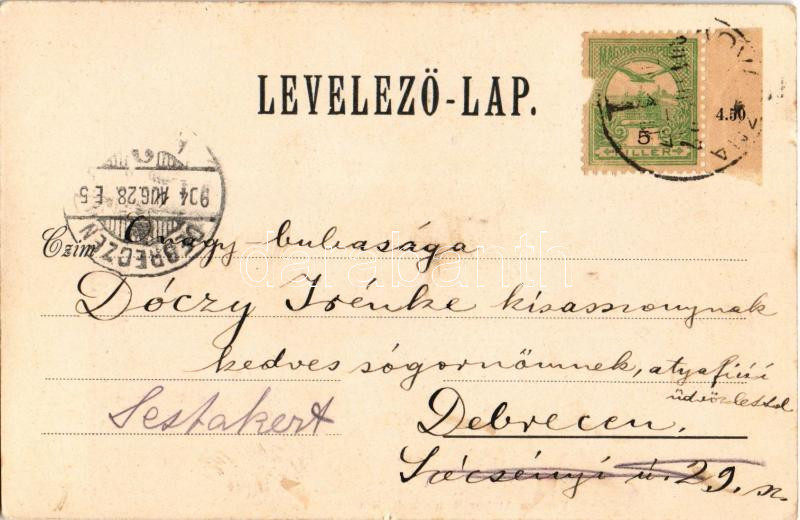 LEVELEZŐ-LAP.
MAGYAR KIR. POSTA
5
FILLER
4.50
904 AUG. 28 E 5
DEBRECZEN
Czim Ő nagy-bubasága
Dóczy Irénke kisasszonynak
kedves sógornőmnek, atyafiúi
üdvözlettel
Sestakert
Debrecen.
Szécsényi ú. 29. sz.
darabanth